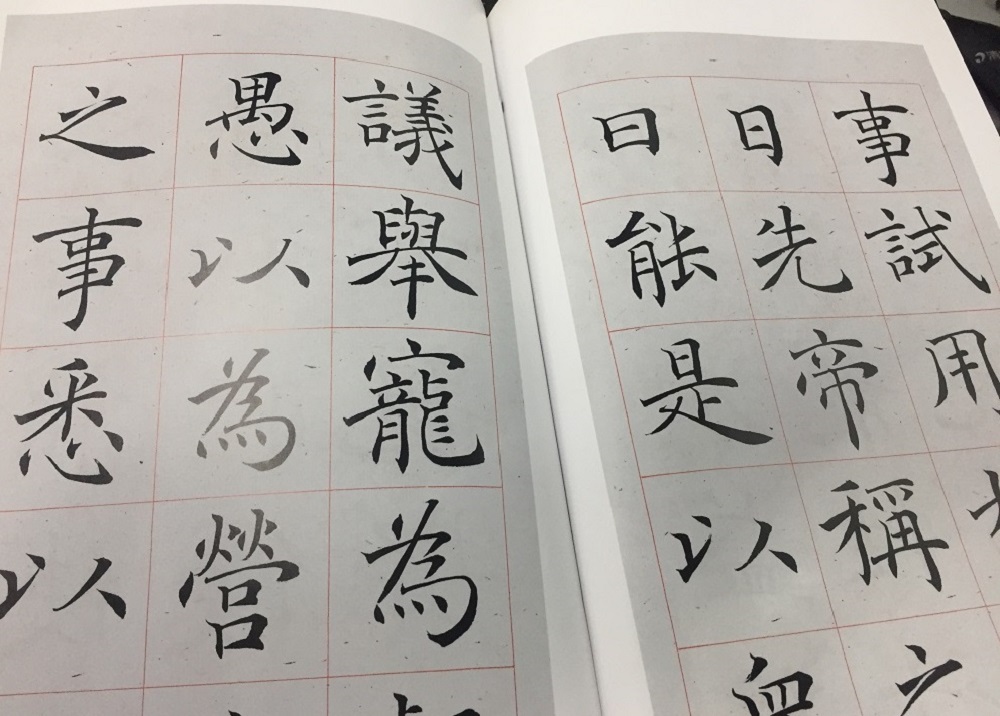 事試用
日先帝稱
曰能是以
議舉寵為
愚以為營
之事悉以